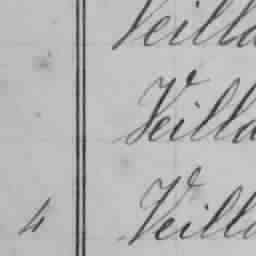 Veilla
Veilla
4 Veilla